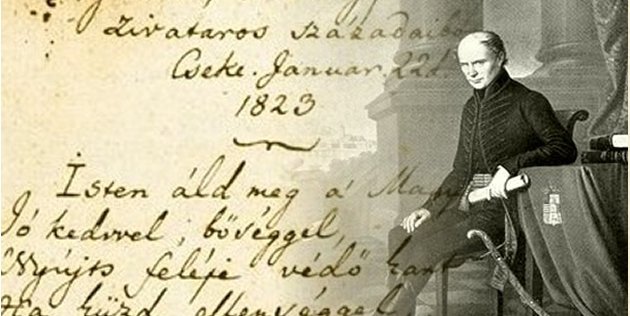 Zivataros századaibó
Cseke. Januar. 22d.
1823
Isten áld meg a' Magy
Jó kedvvel, bőséggel,
Nyújts feléje védő kart
Ha küzd ellenséggel